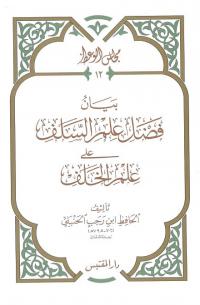 مجالس الوعظ
١٣
بيان
فضل علم السلف
على
علم الخلف
تأليف
الحافظ ابن رجب الحنبلي
دار المقتبس